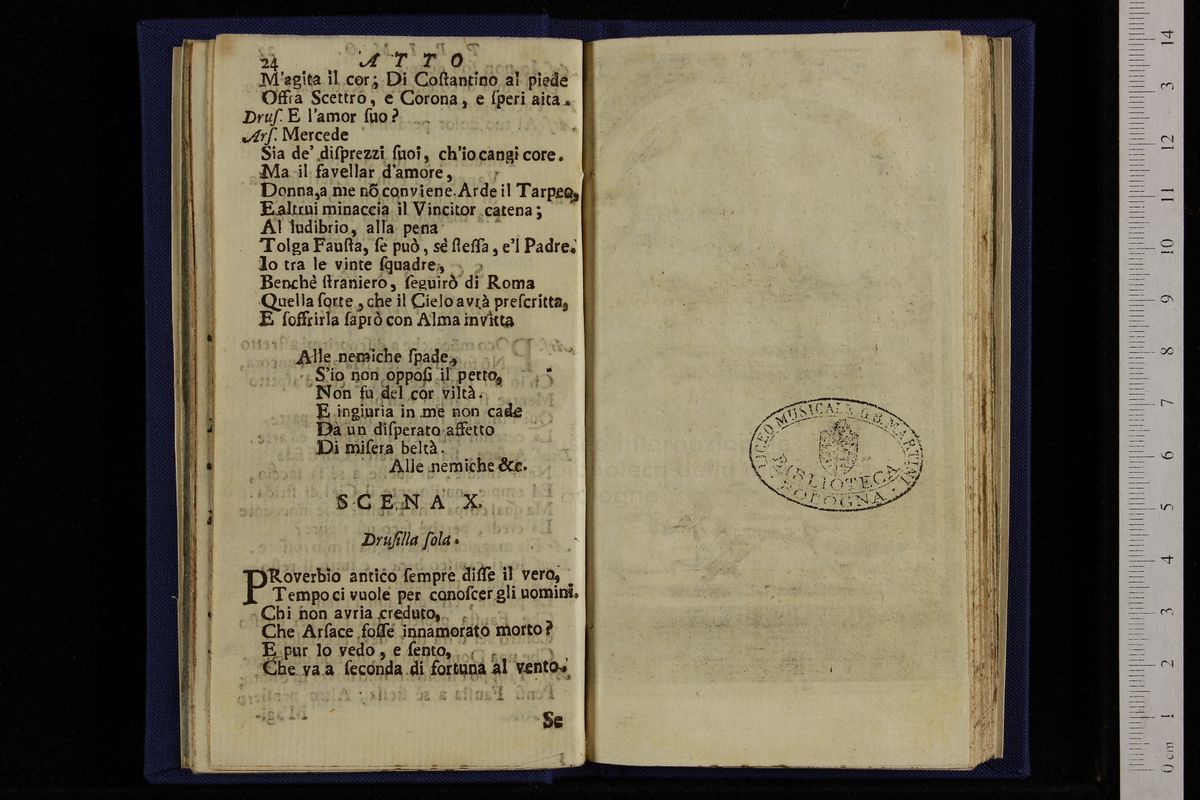 24 ATTO
M'agita il cor; Di Coſtantino al piede
Offra Scettro, e Corona, e ſperi aita.
Druſ. E l'amor ſuo?
Arſ. Mercede
Sia de' diſprezzi ſuoi, ch'io cangi core.
Ma il favellar d'amore,
Donna, a me nõ conviene. Arde il Tarpeo,
E altrui minaccia il Vincitor catena;
Al ludibrio, alla pena
Tolga Fauſta, ſe può, sè ſteſſa, e'l Padre.
Io tra le vinte ſquadre,
Benchè ſtraniero, ſeguirò di Roma
Quella ſorte, che il Cielo avrà preſcritta,
E ſoffrirla ſaprò con Alma invitta
Alle nemiche ſpade,
S'io non oppoſi il petto,
Non fu del cor viltà.
E ingiuria in me non cade
Da un diſperato affetto
Di miſera beltà.
Alle nemiche &c.
SCENA X.
Druſilla ſola.
PRoverbio antico ſempre diſſe il vero,
Tempo ci vuole per conoſcer gli uomini.
Chi non avria creduto,
Che Arſace foſſe innamorato morto?
E pur lo vedo, e ſento,
Che va a ſeconda di fortuna al vento.
Se
LICEO MUSICALE G.B. MARTINI
BIBLIOTECA
BOLOGNA
0 cm 1 2 3 4 5 6 7 8 9 10 11 12 3 14